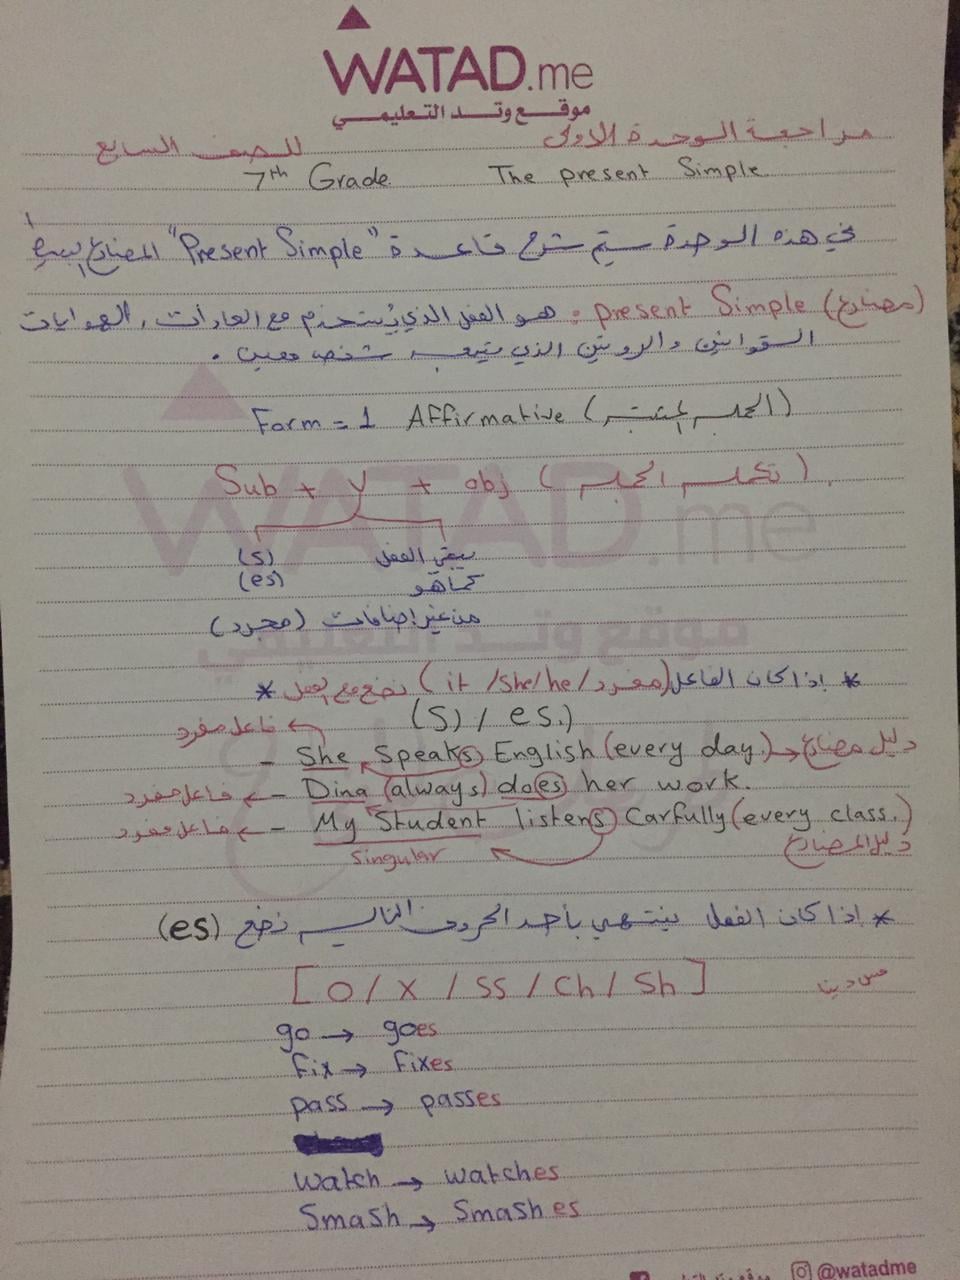 WATAD.me
موقع وتد التعليمي
مراجعة الوحدة الاولى للصف السابع
7th Grade The present Simple
في هذه الوحدة سيتم شرح قاعدة "Present Simple" المضارع البسيط
present Simple (مضارع) : هو الفعل الذي يُستخدم مع العادات, الهوايات
القوانين والروتين الذي يتبعه شخص معين .
Form = 1 Affirmative (الجمل المثبتة)
Sub + V + obj (تكملة الجملة)
(s) يبقى الفعل
(es) كما هو
من غير اضافات (مجرد)
* اذا كان الفاعل (مفرد/it /She/he) نضع مع الفعل *
(S) / es.)
فاعل مفرد
- She Speaks English (every day.) → دليل مضارع
فاعل مفرد ← - Dina (always) does her work.
فاعل مفرد ← - My Student listens Carfully (every class.)
Singular دليل المضارع
* اذا كان الفعل ينتهي بأحد الحروف التالية نضع (es)
[O / X / SS / Ch / Sh]
مس دينا
go → goes
fix → fixes
pass → passes
watch → watches
Smash → Smashes
@watadme